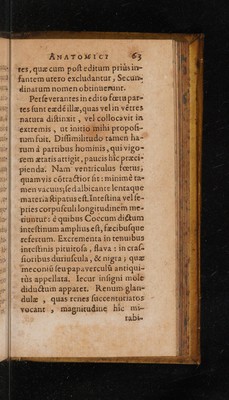 ANATOMICI 63
res, quæ cum post editum priùs in-
fantem utero excludantur, Secun-
dinarum nomen obtinuerunt.
Perseverantes in edito fœtu par-
tes sunt eædē illæ, quas vel in vētres
natura distinxit, vel collocavit in
extremis, ut initio mihi proposi-
tum fuit. Dissimilitudo tamen ha-
rum à partibus hominis, qui vigo-
rem ætatis attigit, paucis hîc præci-
pienda. Nam ventriculus fœtus,
quamvis cōtractior sit: minimè ta-
men vacuus, sed albicante lentaque
materia stipatus est. Intestina vel se-
pties corpusculi longitudinem me-
tiuntur: è quibus Coecum dictum
intestinum amplius est, fæcibusque
refertum. Excrementa in tenuibus
intestinis pituitosa, flava: in cras-
sioribus duriuscula, & nigra; quæ
meconiū seu papaverculū antiqui-
tùs appellata. Iecur insigni mole
diductum apparet. Renum glan-
dulæ, quas renes succenturiatos
vocant, magnitudine hîc mi-
rabi-